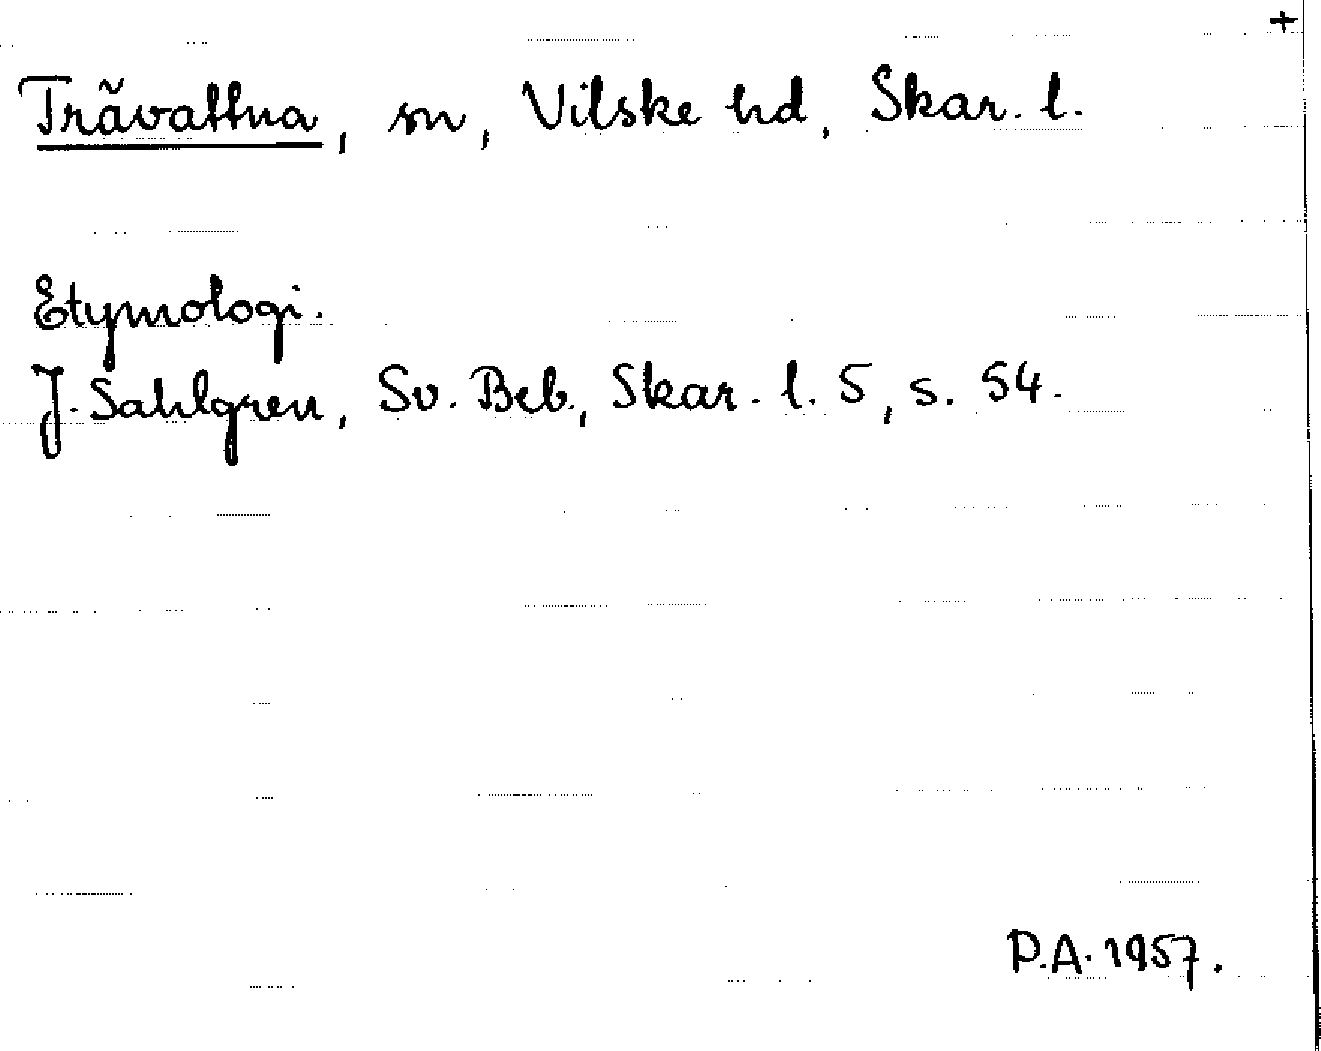 +
Trävattna, sn, Vilske hd, Skar. l.
Etymologi.
J. Sahlgren, Sv. Beb., Skar. l. 5, s. 54.
P.A. 1957.